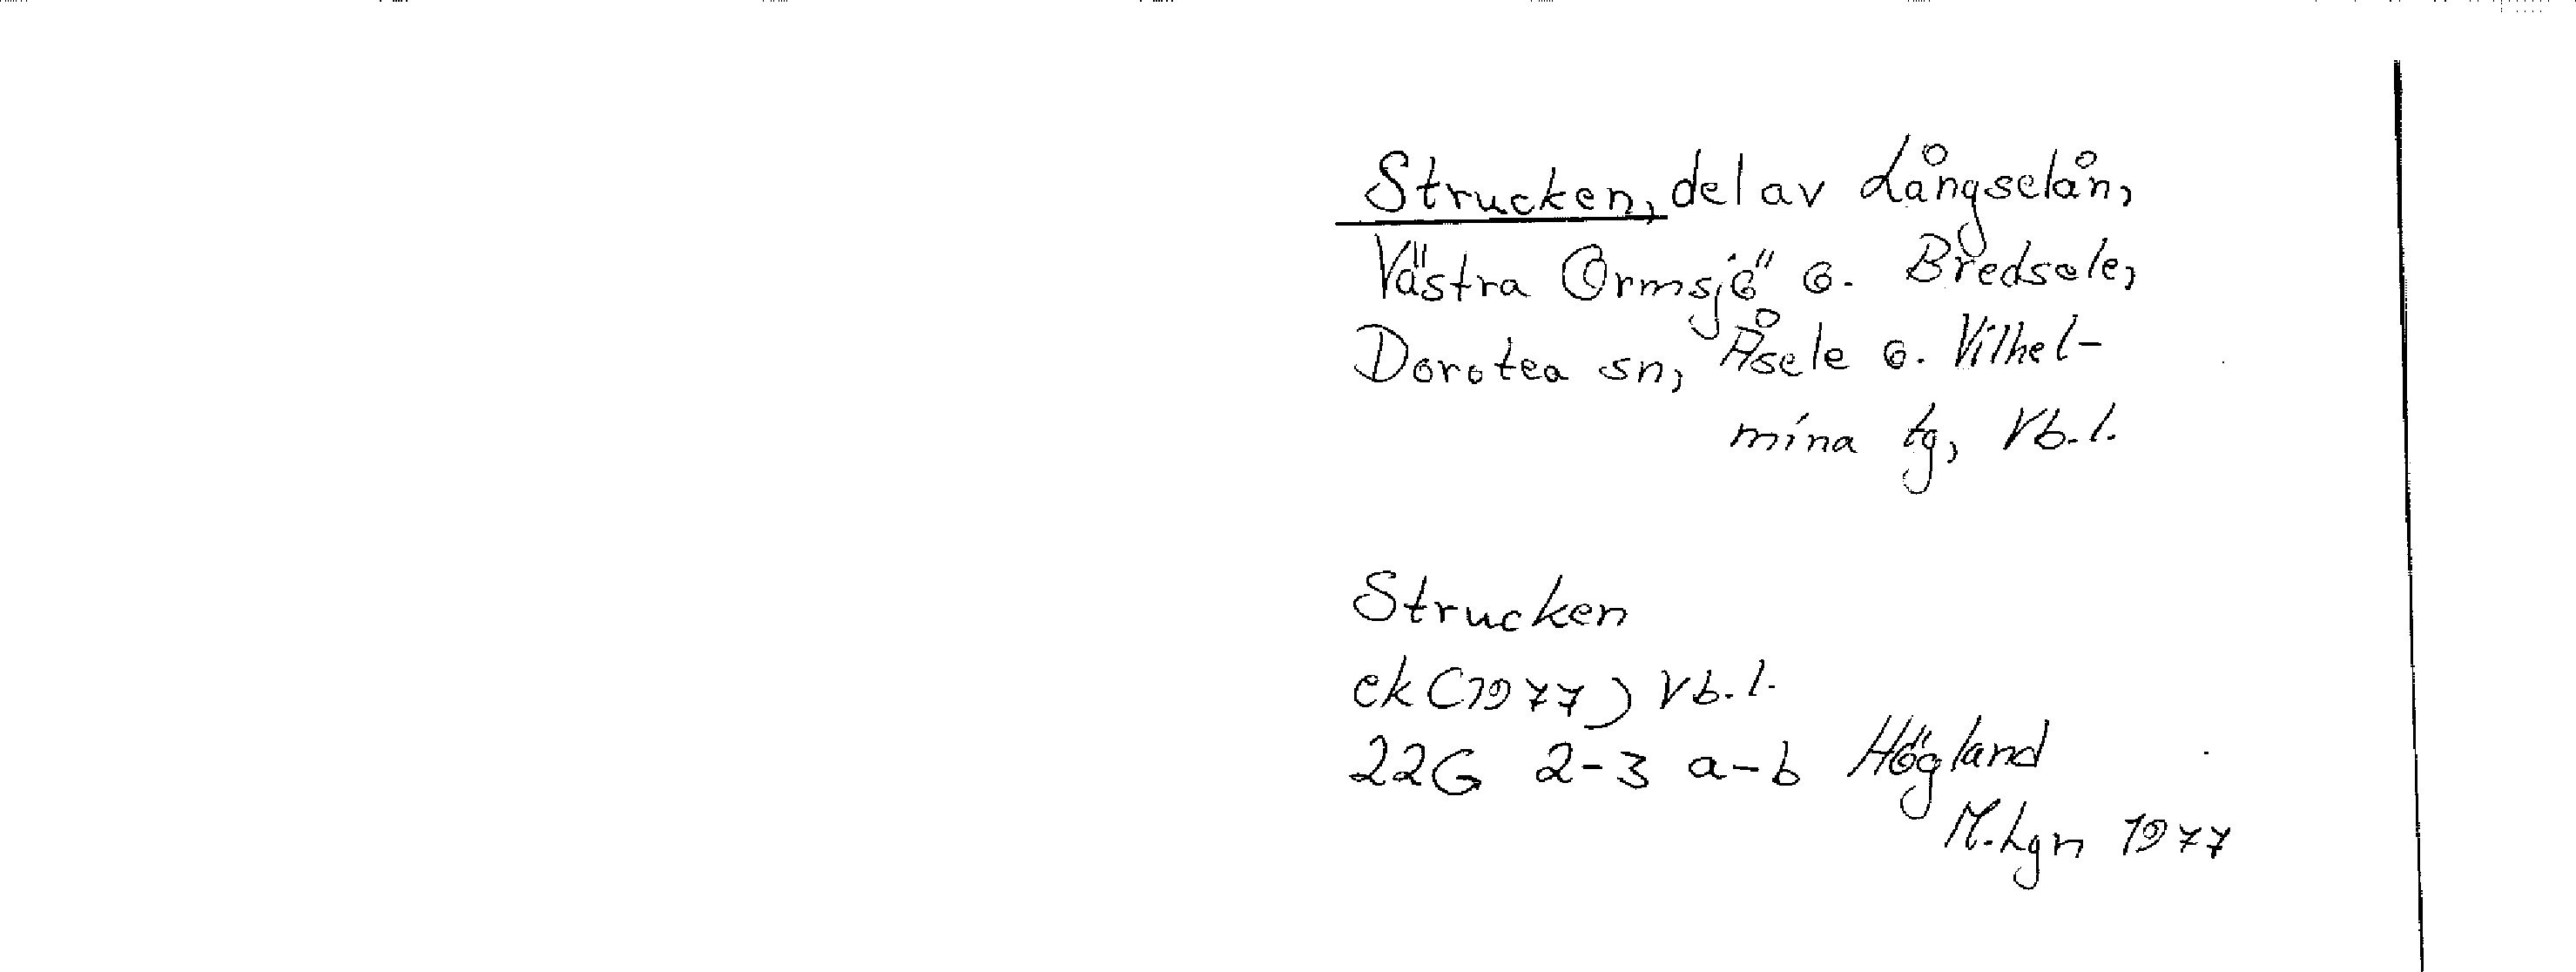 Strucken, del av Långselån,
Västra Ormsjö o. Bredsele,
Dorotea sn, Åsele o. Vilhel-
mina tg, Vb.l.
Strucken
ek (1977) Vb.l.
22G 2-3 a-b Högland
M.Lgn 1977